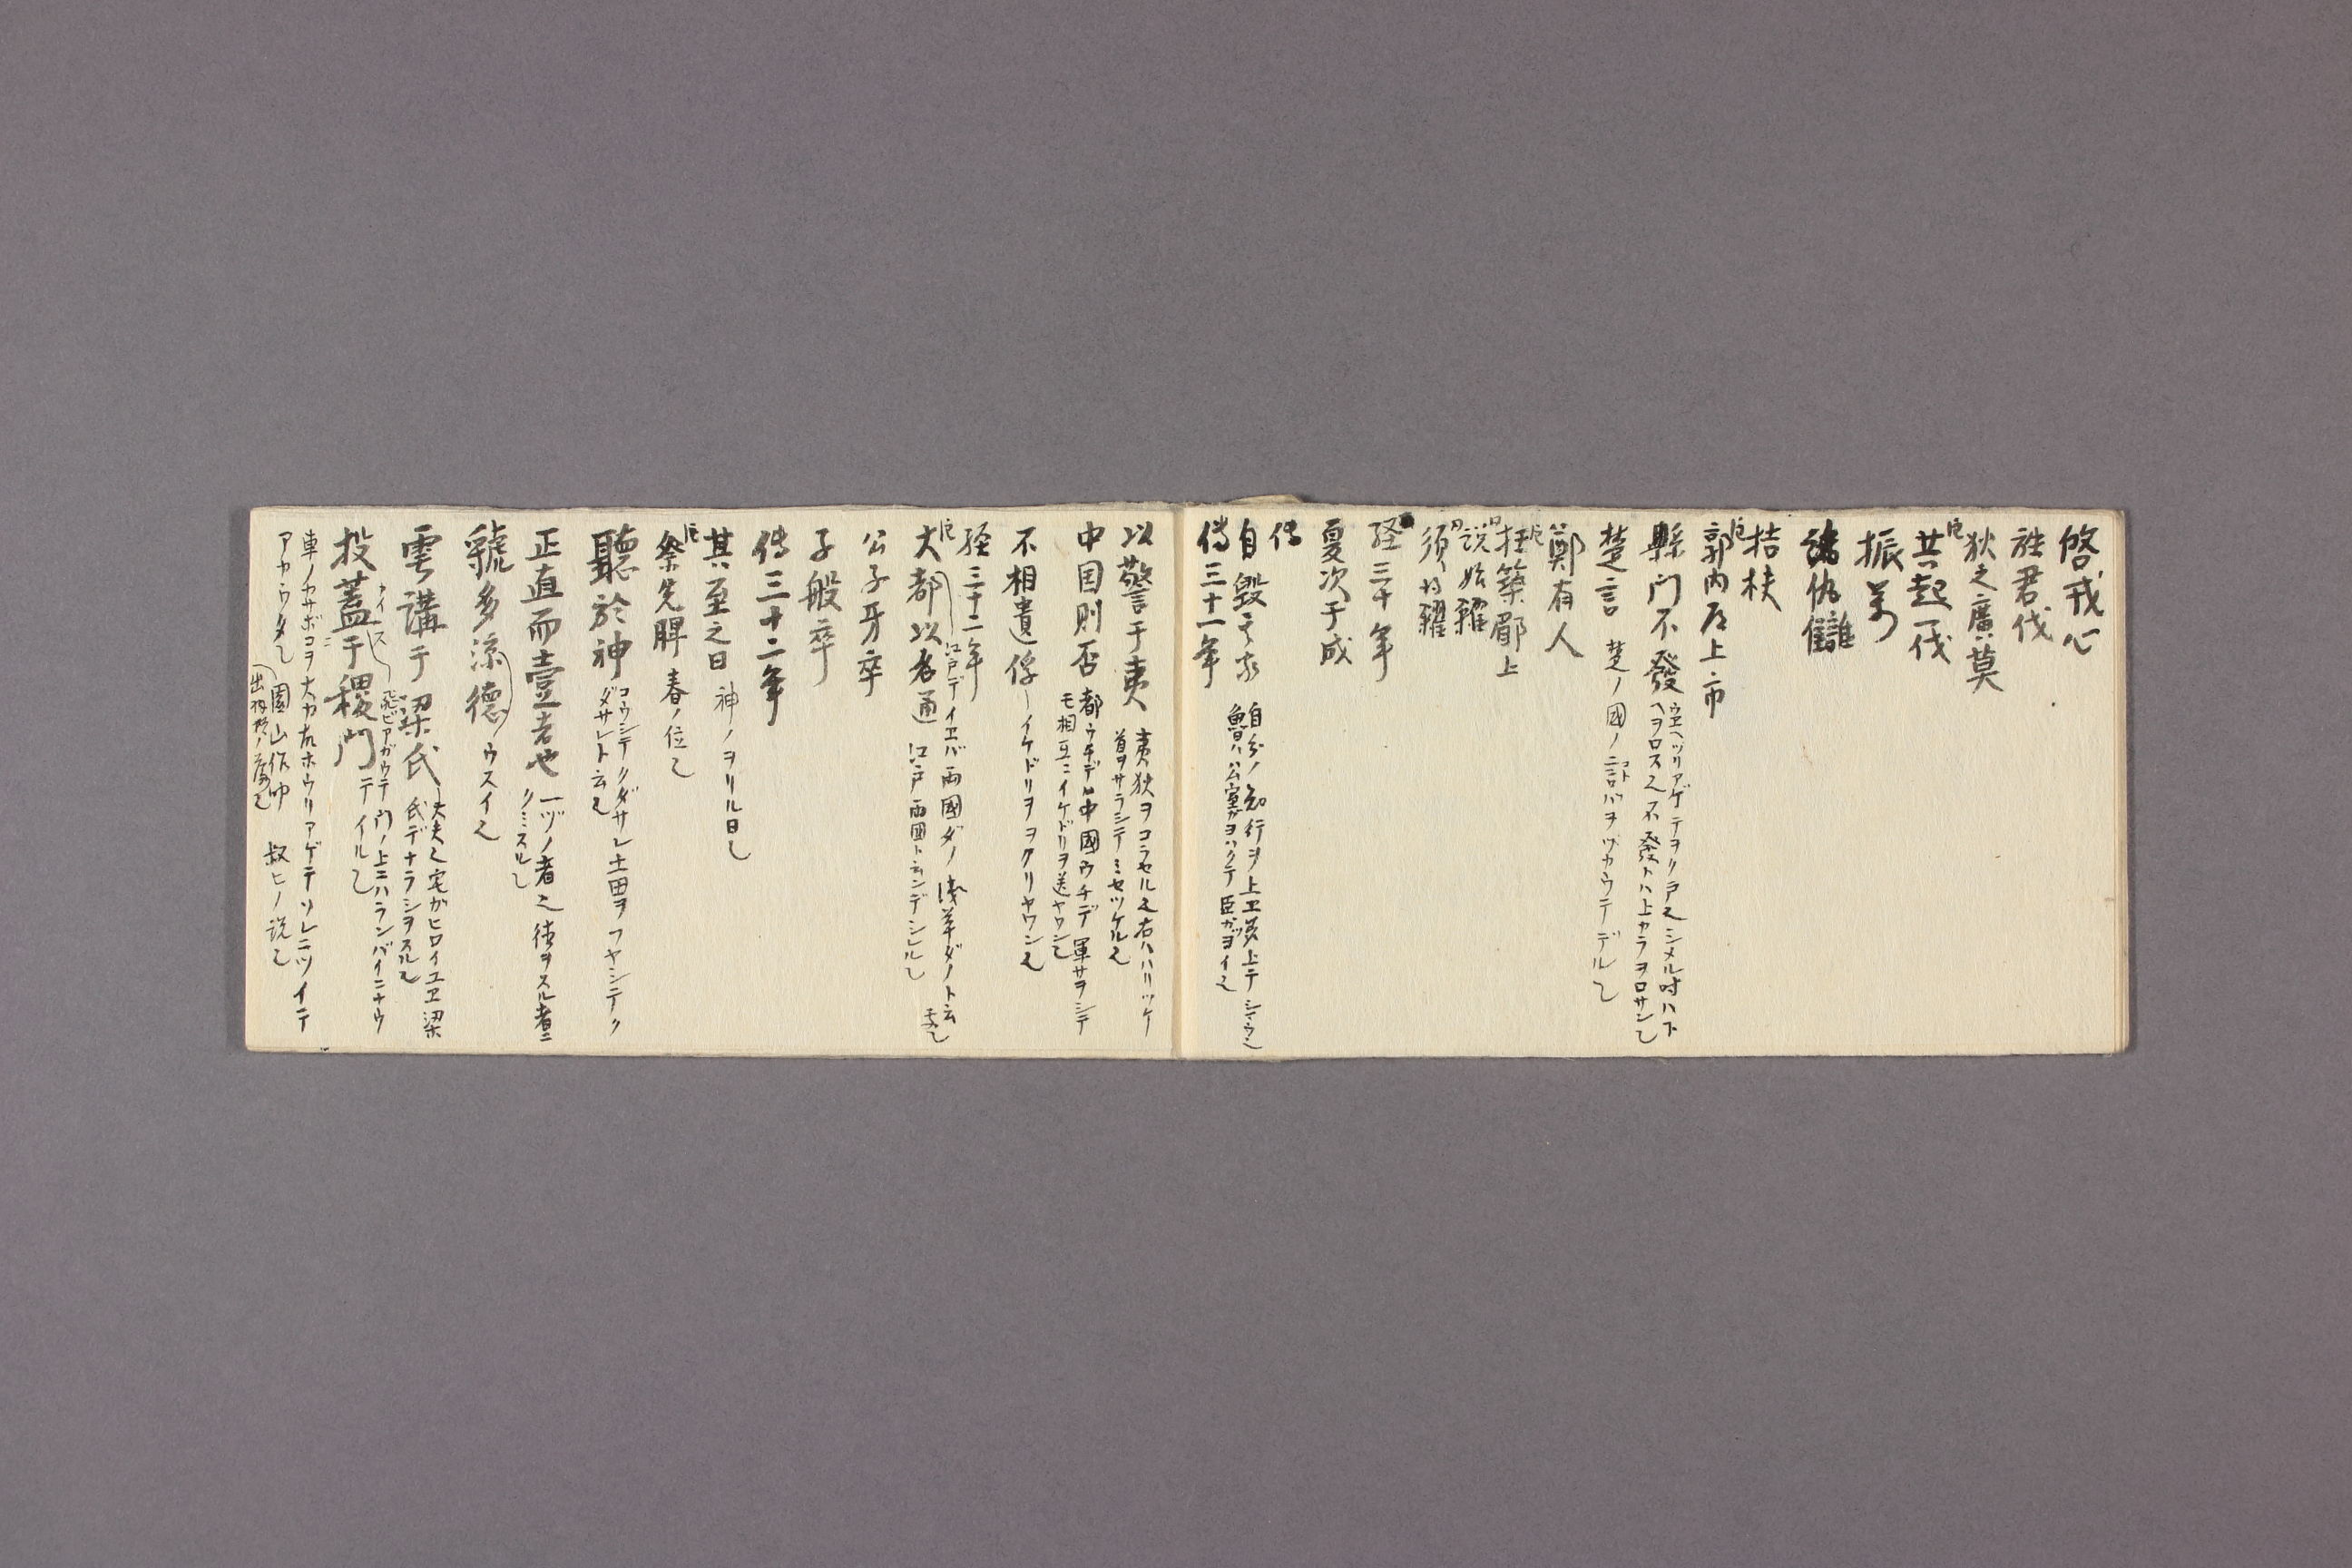 啓戎心
姓君伐
狄之廣莫
共起一伐
振萬
諸仇讎
桔柣
郭内道上市
縣門不發 ウエヘツリアゲテヲク戸也シメル時ハ下
ヘヲロス也不發トハ上カラヲロサン也
楚言 楚ノ國ノ言バヲツカウテデル也
鄭有人
経築郿上
説始糴
須得糴
経三十年
夏次于成
傳
自毀其家 自分ノ知行ヲ上ヱ差上テシマウ也
魯ハ公室ガヨハクテ臣ガツヨイ也
傳三十一年
以警于夷 夷狄ヲコラセル也右ハハリツケ
首ヲサラシテミセツケル也
中国則否 都ウチデハ中國ウチデ軍サヲシテ
モ相互ニイケドリヲ送ヤワン也
不相遺俘 イケドリヲヲクリヤワン也
経三十二年
大都以名通 江戸デイヱバ両國ダノ浅草ダノト云
江戸両國ト云ンデシレル也
公子牙卒
子般卒
傳三十二年
其至之日 神ノヲリル日也
祭先脾 春ノ位也
聽於神 コウシテクダサレ土田ヲフヤシテク
ダサレト云也
正直而壹者也 一ヅノ者也徳ヲスル者ニ
クミスル也
虢多涼德 ウスイ也
雩講于梁氏 大夫也宅ガヒロイユヱ梁
氏デナラシヲスル也
投蓋于稷門 飛ビアガウテ門ノ上ニハランバイニナウ
テイル也
車ノカサボコヲ大力故ホウリアゲテソレニツイテ
アカウタ也 園山作 叔ヒノ説也